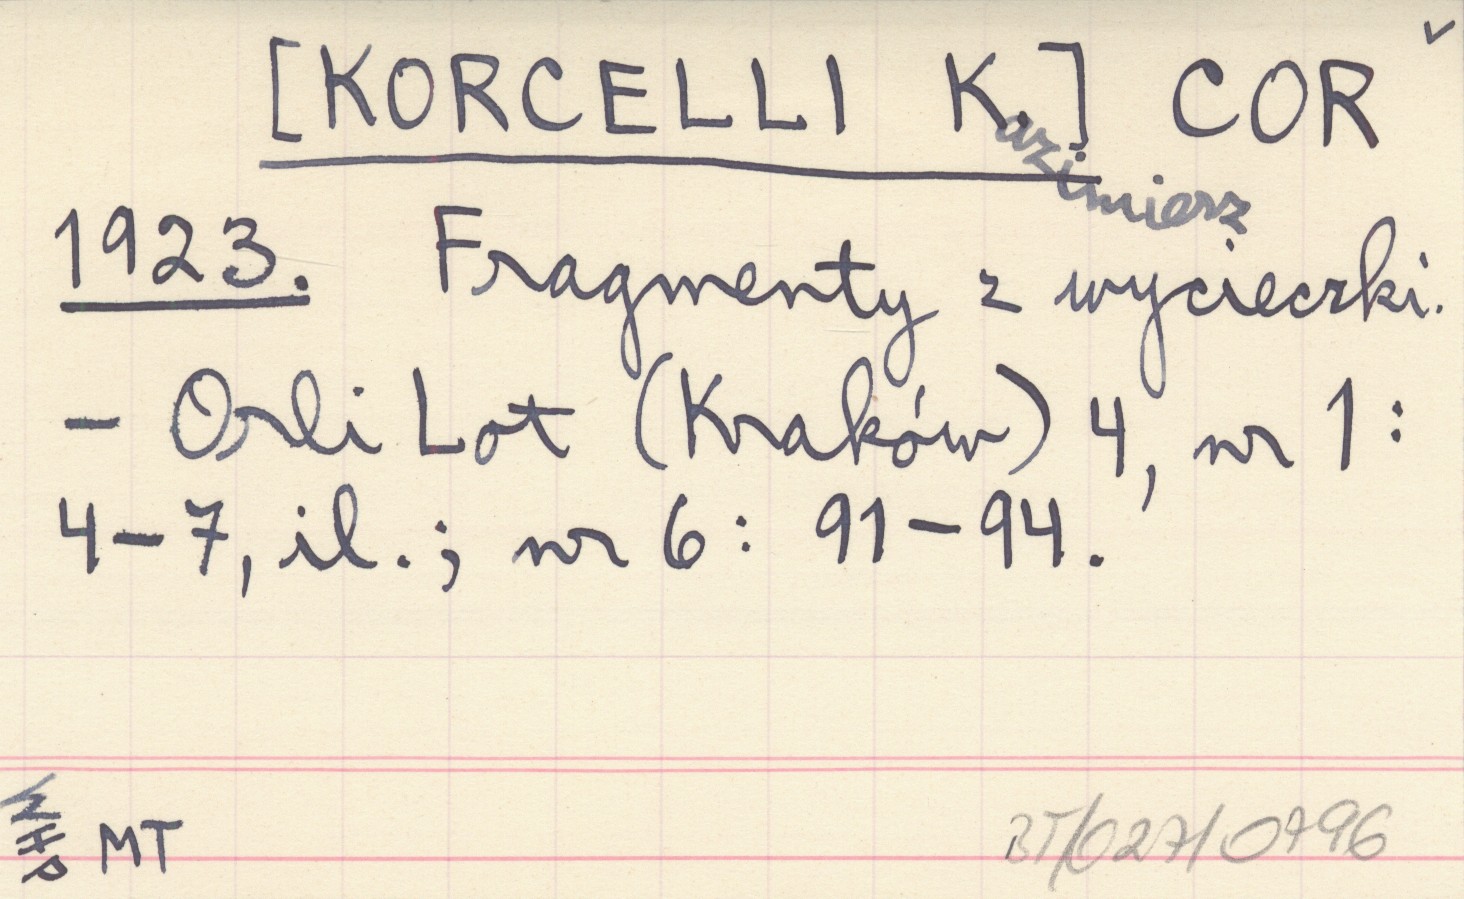 [KORCELLI K.azimierz] COR
1923. Fragmenty z wycieczki.
– Orli Lot (Kraków) 4, nr 1:
4–7, il.; nr 6: 91–94.
WHP MT
BT/027/0796